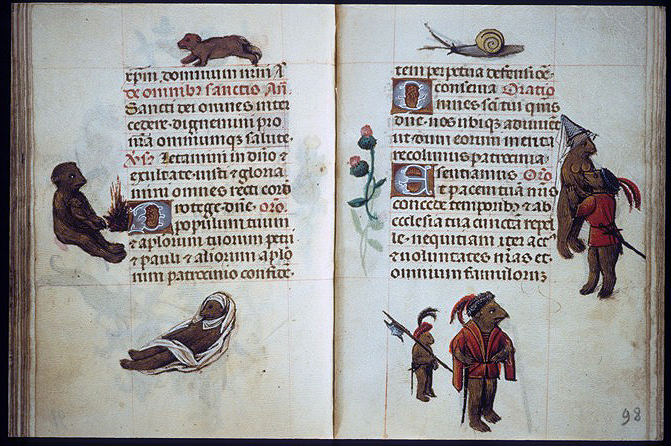 xpm dominum nrm A
de omnibz sanctis An
Sancti dei omnes inter
cedere dignemini pro
nra omniumqz salute
Letamini in dno &
exultate iusti & gloria
mini omnes recti cord
Protege dne Oro
populum tuum
& aplorum tuorum petri
& pauli & aliorum aplo
rum patrocinio confide
tem perpetua defensi
conserva Oratio
Omnes sci tui qms
dne nos ubiqz adiuuet
ut dum eorum merita
recolimus patrocinia
sentiamus Oro
Et pacem tuam nris
concede temporibz & ab
ecclesia tua cuncta repel
le nequitiam iter act
& voluntates nras et
omnium famulorum
98